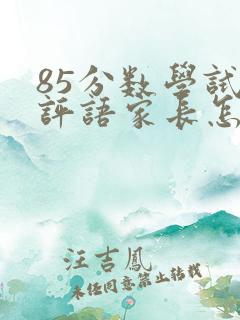 85分数學試
評語家長怎
汪吉鳳
未经同意禁止转载